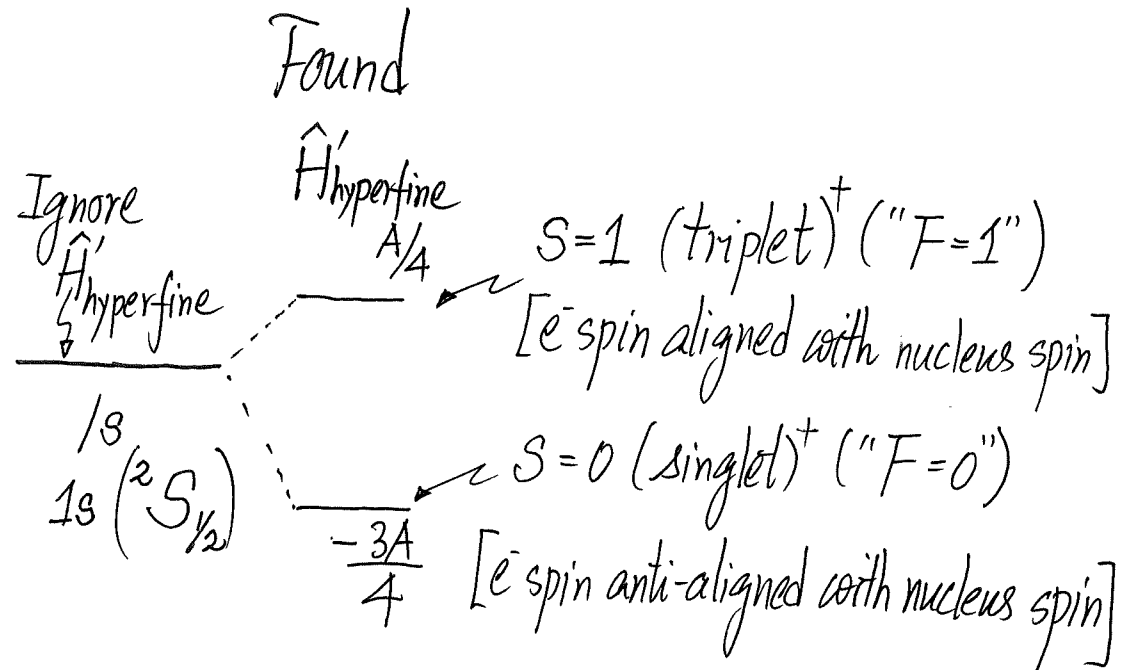 Found
Ĥ'hyperfine
Ignore
Ĥ'hyperfine
A/4
S=1 (triplet)† ("F=1")
[e⁻ spin aligned with nucleus spin]
1s
1s (²S₁/₂)
S=0 (singlet)† ("F=0")
-3A/4
[e⁻ spin anti-aligned with nucleus spin]